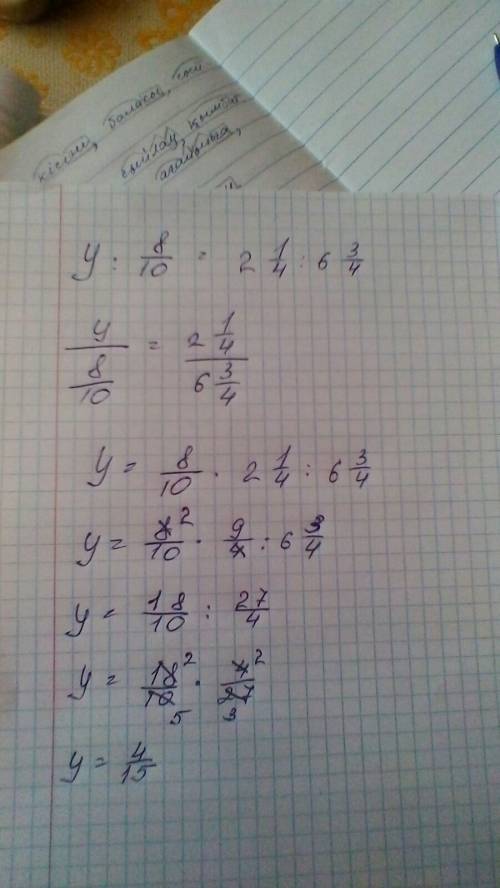 кісіні, баласы,
сыйлау, қымбат
y : 8/10 = 2 1/4 : 6 3/4
y / (8/10) = (2 1/4) / (6 3/4)
y = 8/10 · 2 1/4 : 6 3/4
y = 8 2/10 · 9/4 : 6 3/4
y = 18/10 : 27/4
y = 18 2/10 5 · 4 2/27 3
y = 4/15